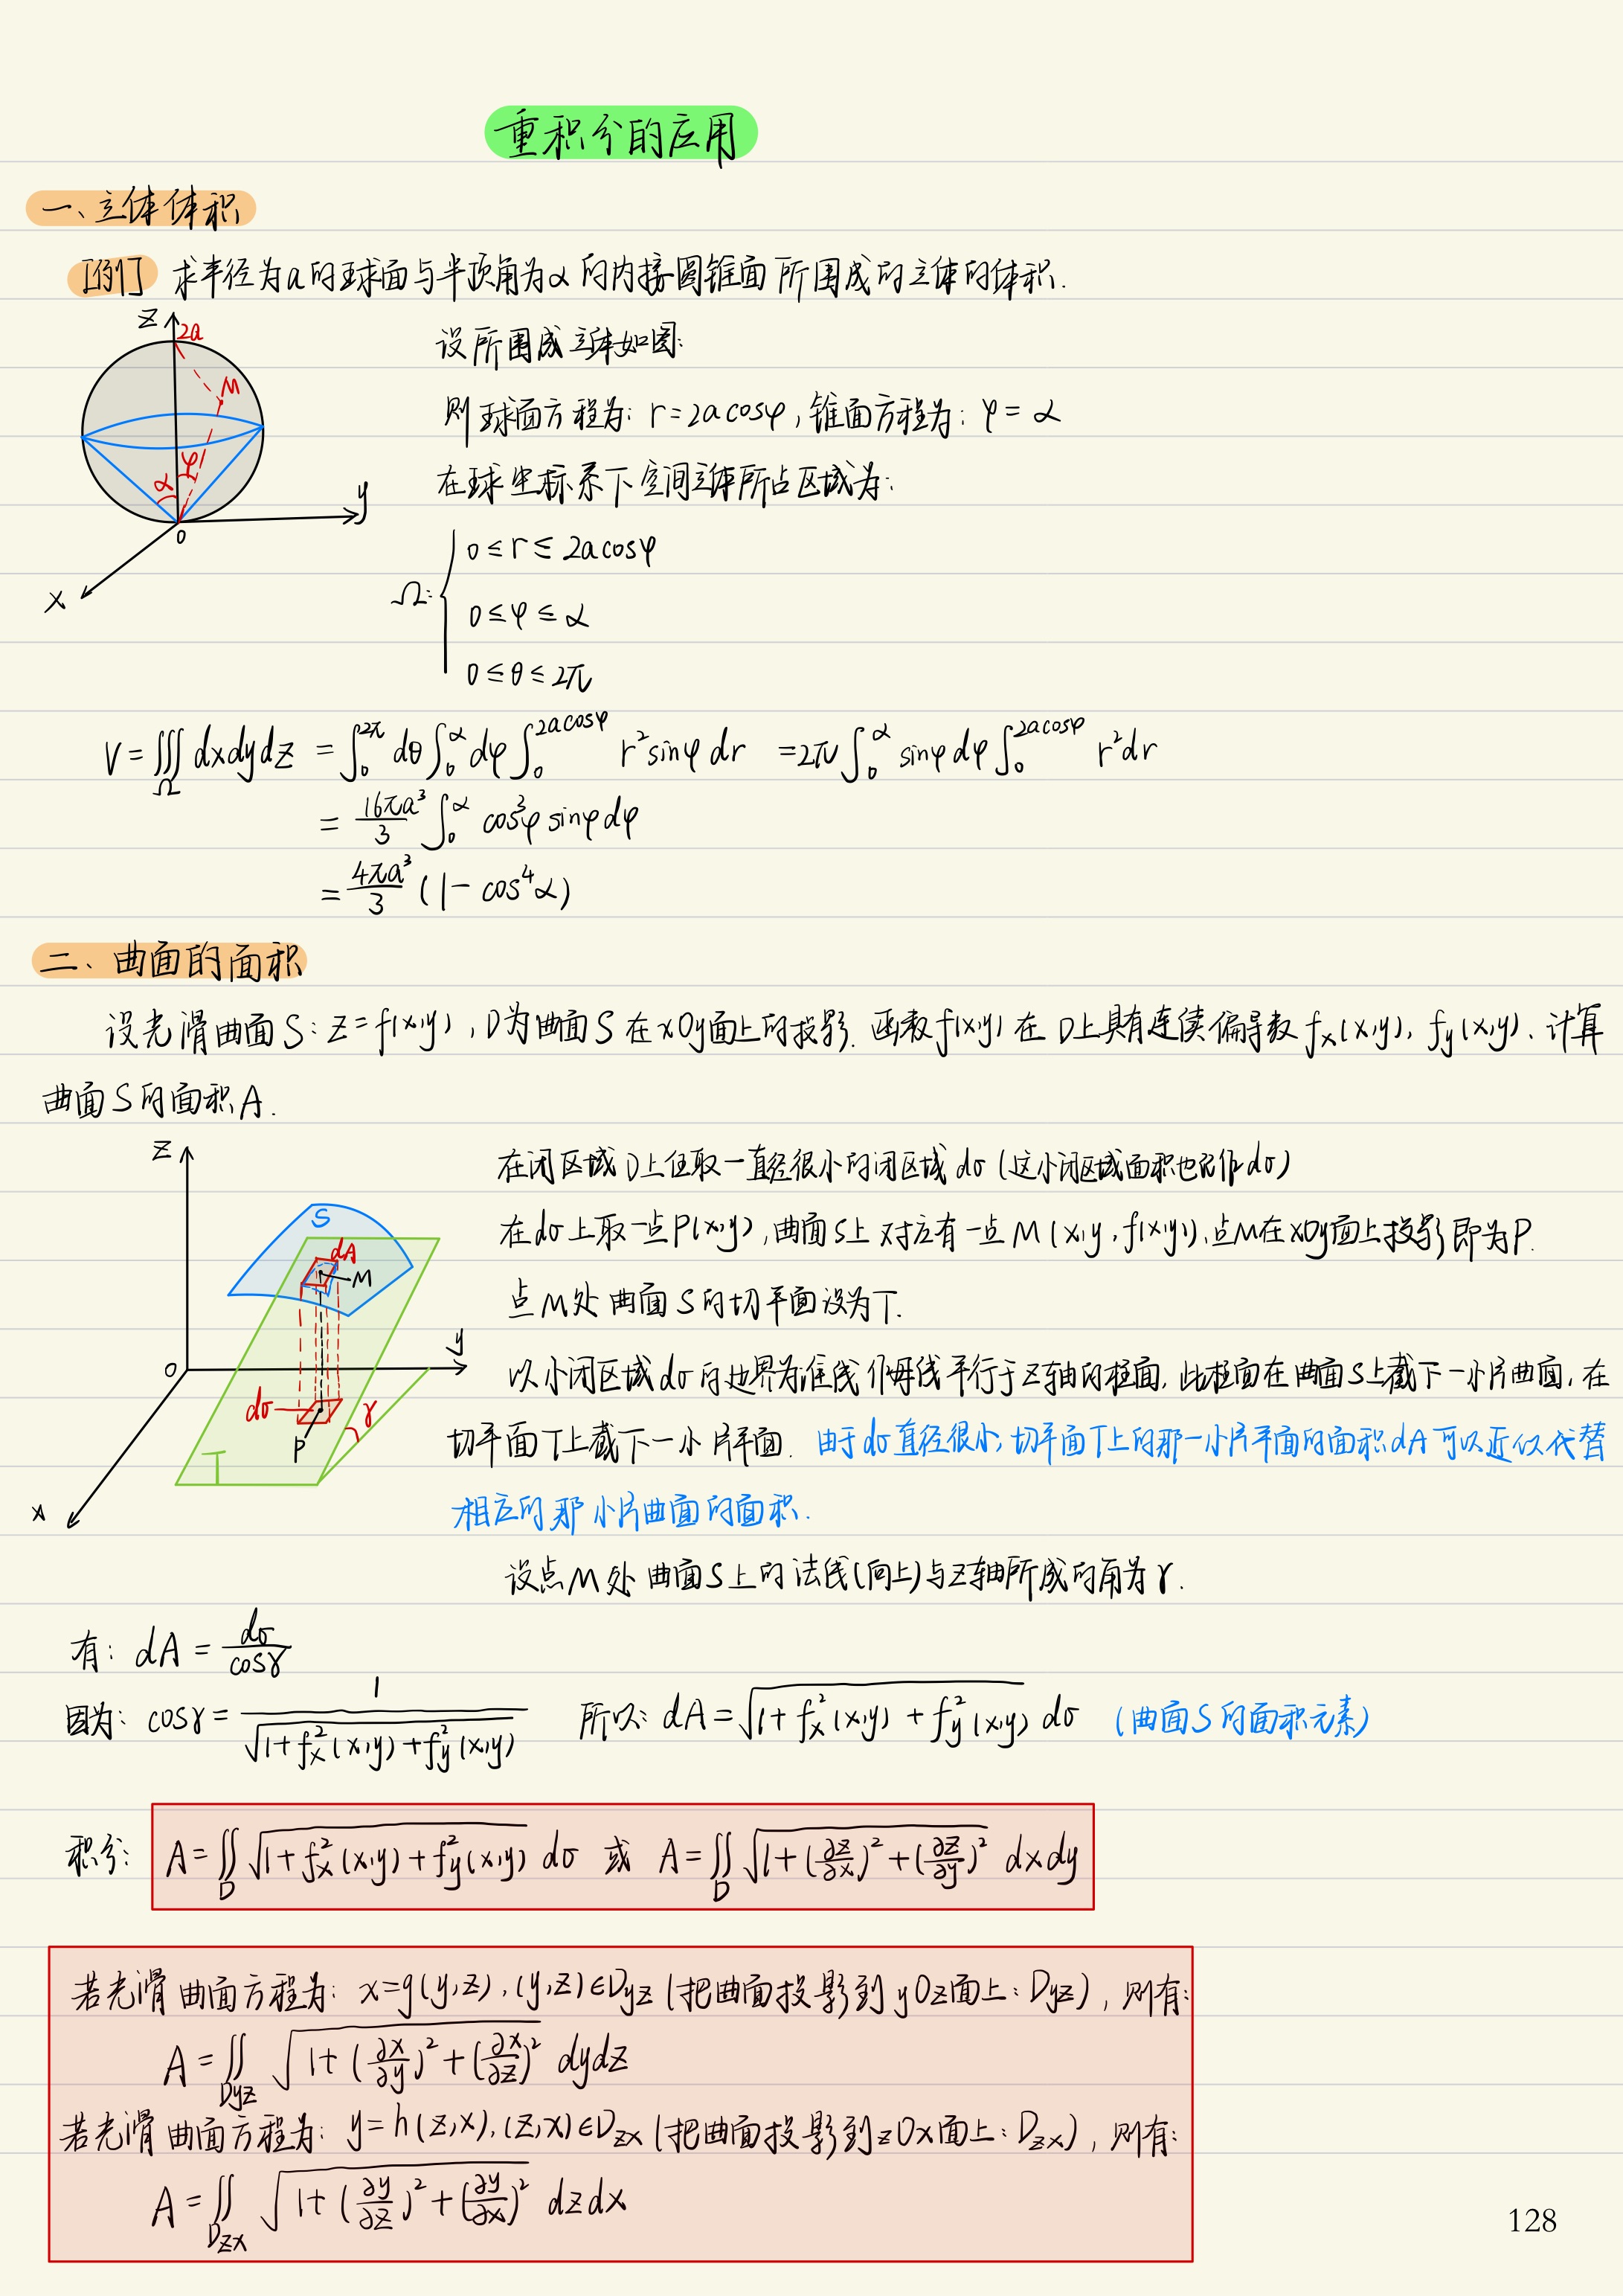 重积分的应用
一、立体体积
[例] 求半径为a的球面与半顶角为α的内接圆锥面所围成的立体的体积.
z
2a
M
α
φ
y
0
x
设所围成立体如图:
则球面方程为: r=2acosφ, 锥面方程为: φ=α
在球坐标系下空间立体所占区域为:
Ω: { 0≤r≤2acosφ
0≤φ≤α
0≤θ≤2π
V=∭_Ω dxdydz = ∫_0^{2π} dθ ∫_0^α dφ ∫_0^{2acosφ} r²sinφ dr =2π ∫_0^α sinφ dφ ∫_0^{2acosφ} r²dr
= 16πa³/3 ∫_0^α cos³φ sinφ dφ
= 4πa³/3 (1- cos⁴α)
二、曲面的面积
设光滑曲面S: z=f(x,y), D为曲面S在xOy面上的投影. 函数f(x,y)在D上具有连续偏导数 f_x(x,y), f_y(x,y). 计算
曲面S的面积A.
z
S
dA
M
y
0
dσ
γ
P
T
x
在闭区域D上任取一直径很小的闭区域dσ(这小闭区域面积也记作dσ)
在dσ上取一点P(x,y), 曲面S上对应有一点M(x,y,f(x,y)), 点M在xOy面上投影即为P.
点M处曲面S的切平面设为T.
以小闭区域dσ的边界为准线作母线平行于z轴的柱面, 此柱面在曲面S上截下一小片曲面, 在
切平面T上截下一小片平面. 由于dσ直径很小, 切平面T上的那一小片平面的面积dA可以近似代替
相应的那小片曲面的面积.
设点M处曲面S上的法线(向上)与z轴所成的角为γ.
有: dA = dσ/cosγ
因为: cosγ = 1/√(1+f_x²(x,y)+f_y²(x,y)) 所以: dA=√(1+f_x²(x,y)+f_y²(x,y)) dσ (曲面S的面积元素)
积分: A=∬_D √(1+f_x²(x,y)+f_y²(x,y)) dσ 或 A=∬_D √(1+(∂z/∂x)²+(∂z/∂y)²) dxdy
若光滑曲面方程为: x=g(y,z), (y,z)∈D_yz (把曲面投影到yOz面上: D_yz), 则有:
A=∬_{D_yz} √(1+(∂x/∂y)²+(∂x/∂z)²) dydz
若光滑曲面方程为: y=h(z,x), (z,x)∈D_zx (把曲面投影到zOx面上: D_zx), 则有:
A=∬_{D_zx} √(1+(∂y/∂z)²+(∂y/∂x)²) dzdx
128